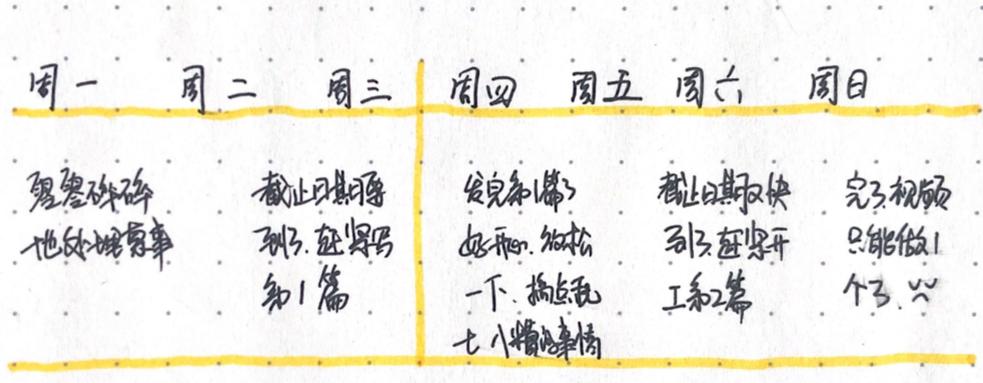 周一 周二 周三 周四 周五 周六 周目
零零碎碎
地处理家事
截止日期要
到了.赶紧写
第1篇
发完第1篇了
好开心.放松
一下.搞点乱
七八糟的事情
截止日期又快
到了.赶紧开
工第2篇
完了.视频
只能做1
个了.